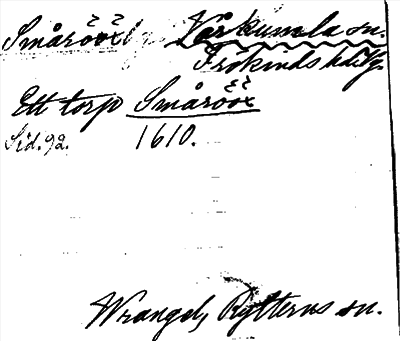 Smårööt Vårkumla sn.
Frökinds hd Vg.
Ett torp Smårööt
Sid. 92. 1610.
Wrangel, Rytterns sn.